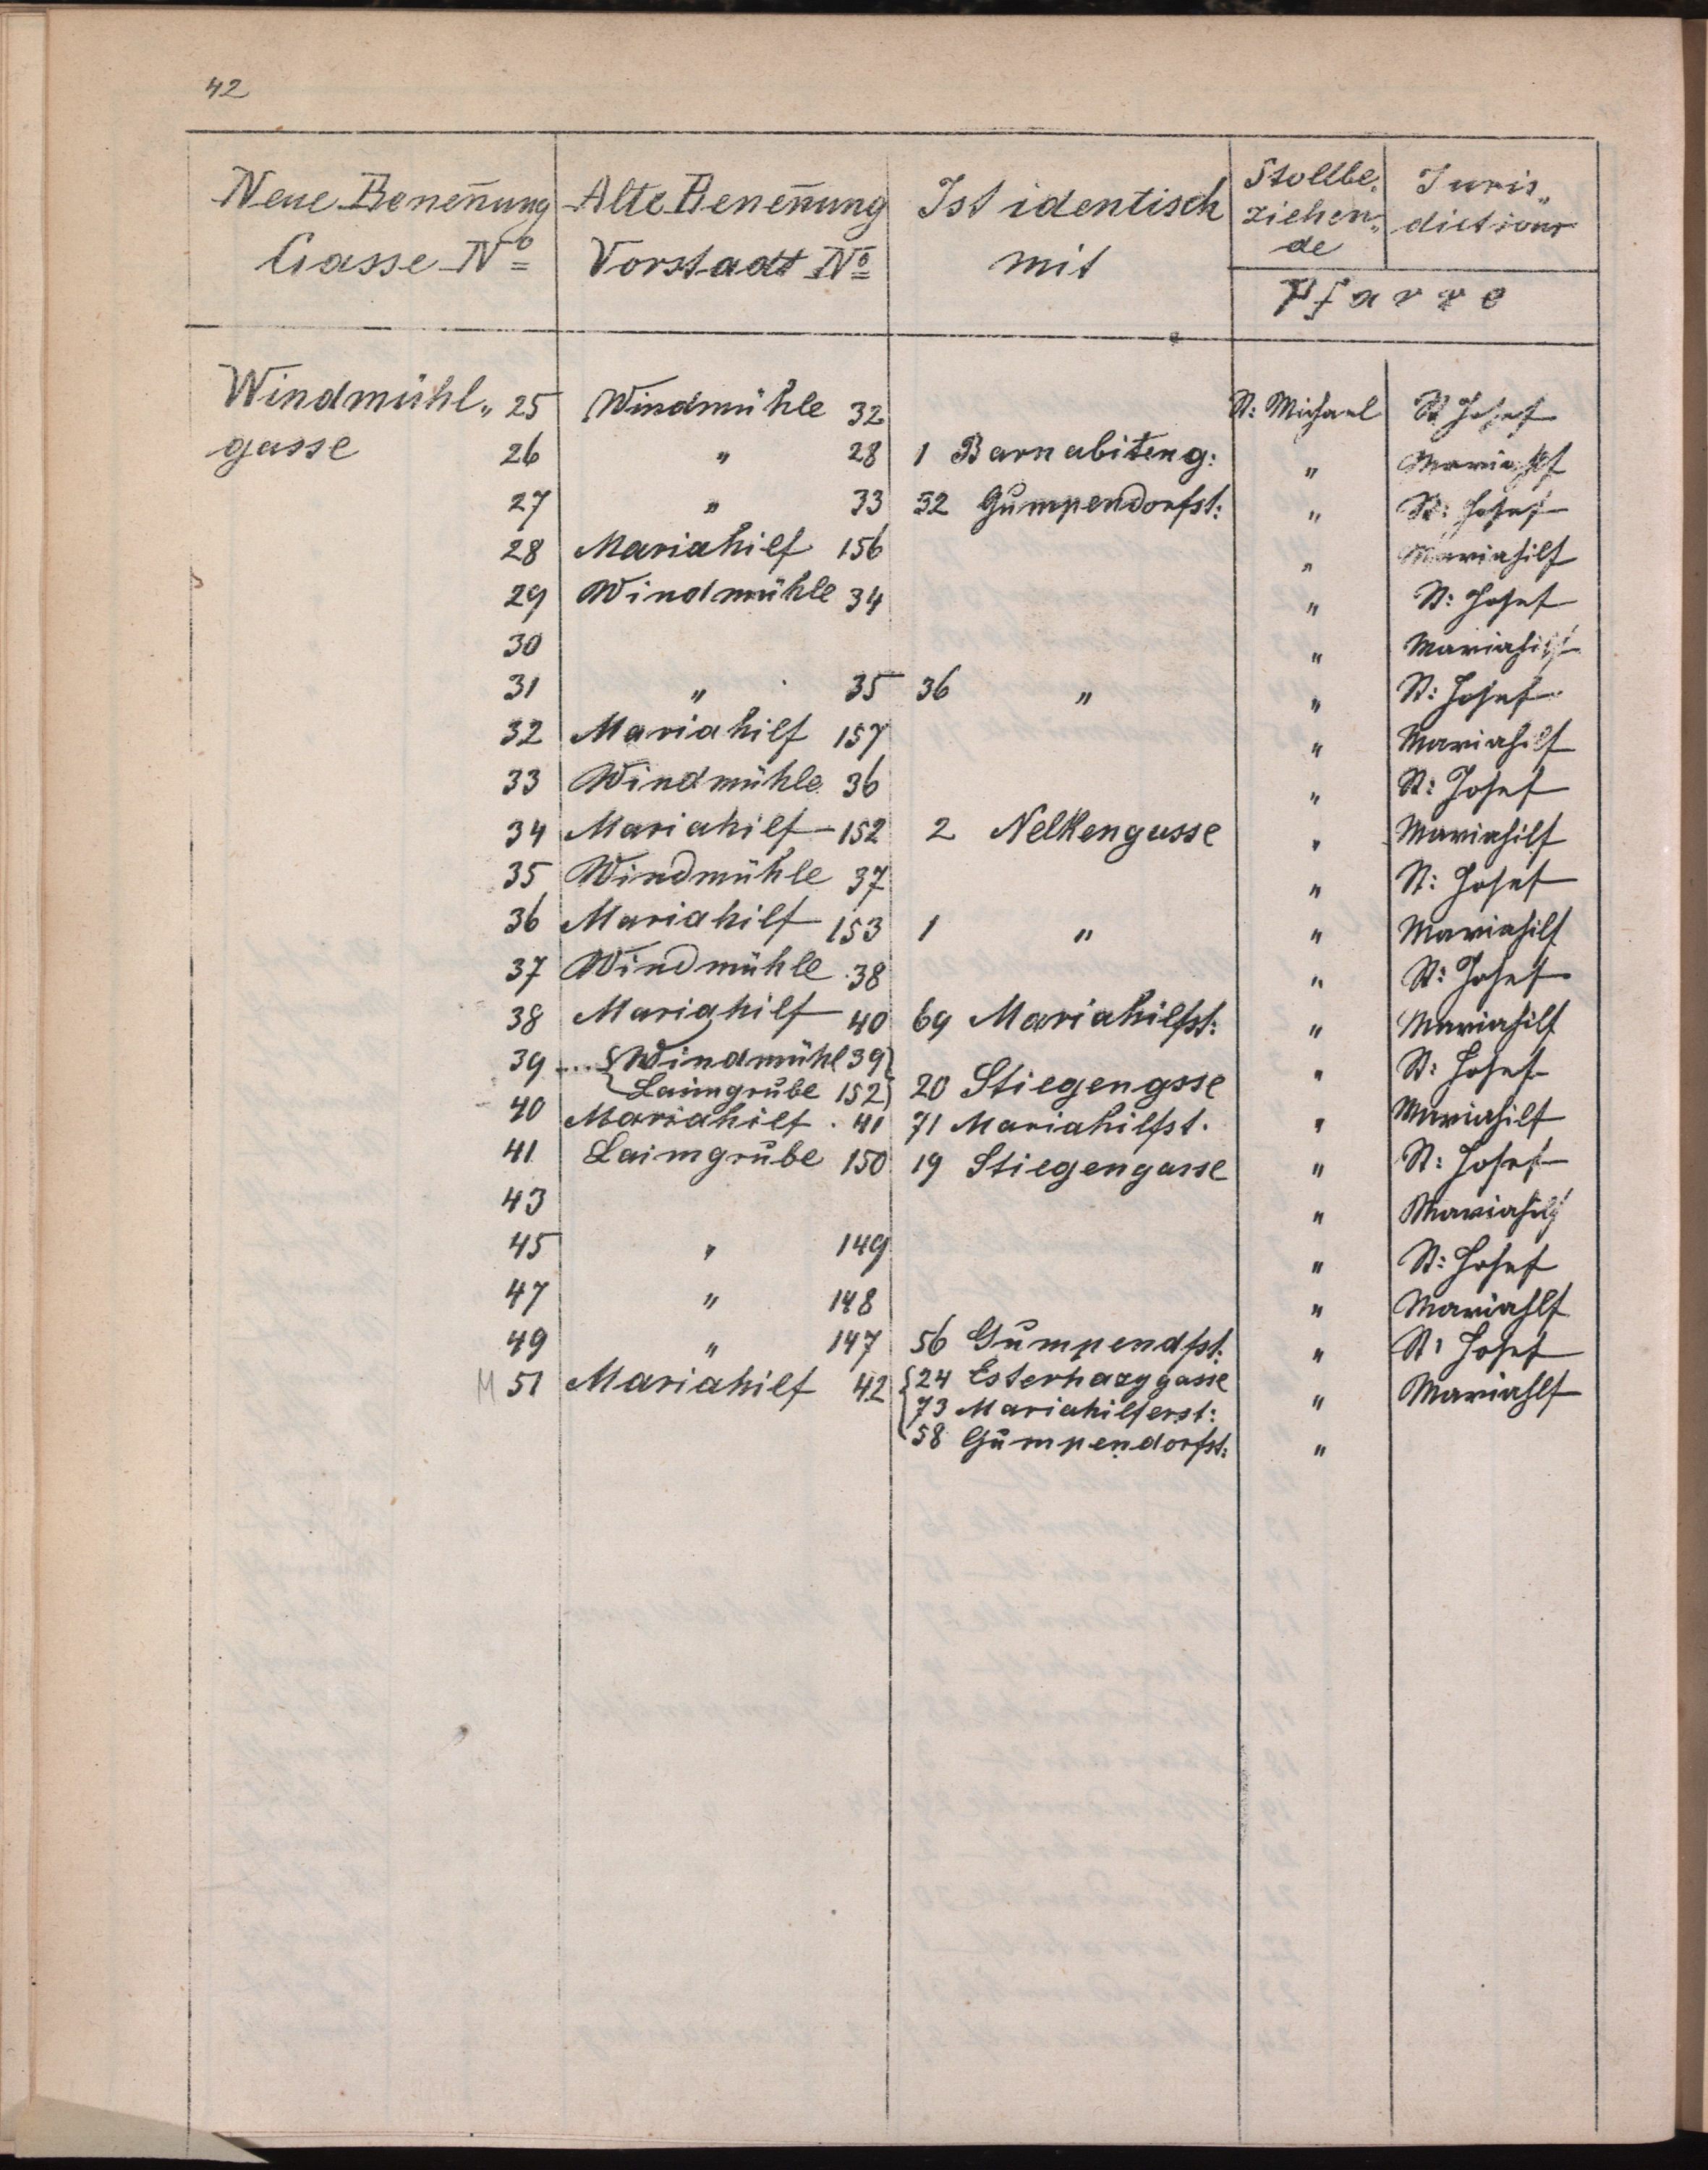 42
Neue Benen̄ung Gasse No
Alte Benen̄ung Vorstadt No
Ist identisch mit
Stollbe„ ziehen„ de
Juris„ dictions
Pfarre
Windmühl„ 25 Windmühle 32 St: Michael St Josef
gasse 26 " 28 1 Barnabiteng: " Mariahlf
27 " 33 32 Gumpendorfst: " St: Josef
28 Mariahilf 156 " Mariahilf
29 Windmühle 34 " St: Josef
30 " Mariahilf
31 " 35 36 " " St: Josef
32 Mariahilf 157 " Mariahilf
33 Windmühle 36 " St: Josef
34 Mariahilf 152 2 Nelkengasse " Mariahilf
35 Windmühle 37 " St: Josef
36 Mariahilf 153 1 " " Mariahilf
37 Windmühle 38 " St: Josef
38 Mariahilf 40 69 Mariahilfst: " Mariahilf
39 .... {Windmühl 39} " St: Josef
{Laimgrube 152} 20 Stiegengsse
40 Mariahilf . 41 71 Mariahilfst. " Mariahilf
41 Laimgrube 150 19 Stiegengasse " St: Josef
43 " Mariahilf
45 " 149 " St: Josef
47 " 148 " Mariahlf
49 " 147 56 Gumpendfst: " St: Josef
M 51 Mariahilf 42 {24 Esterhazygasse " Mariahlf
73 Mariahilferst:
58 Gumpendorfst: "